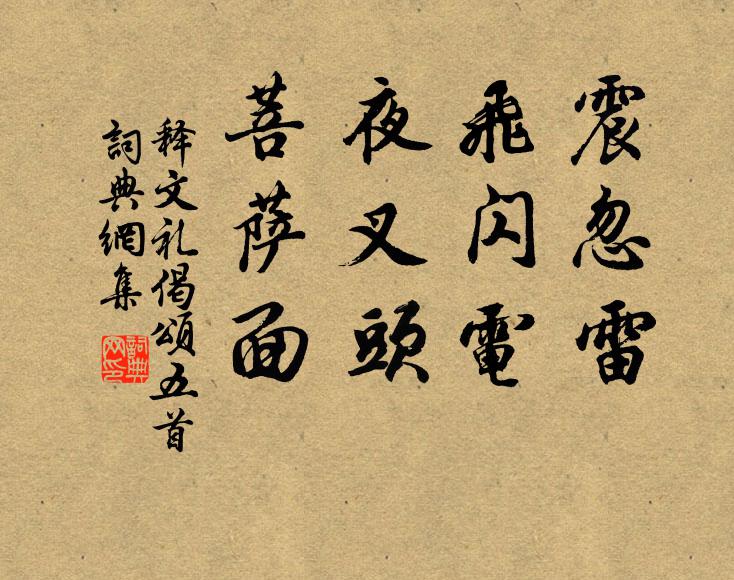 震忽雷
飛閃電
夜叉頭
菩薩面
释文礼偈頌五首
詞典網集
詞典网印